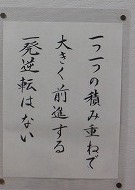 一つ一つの積み重ねで
大きく前進する
一発逆転はない